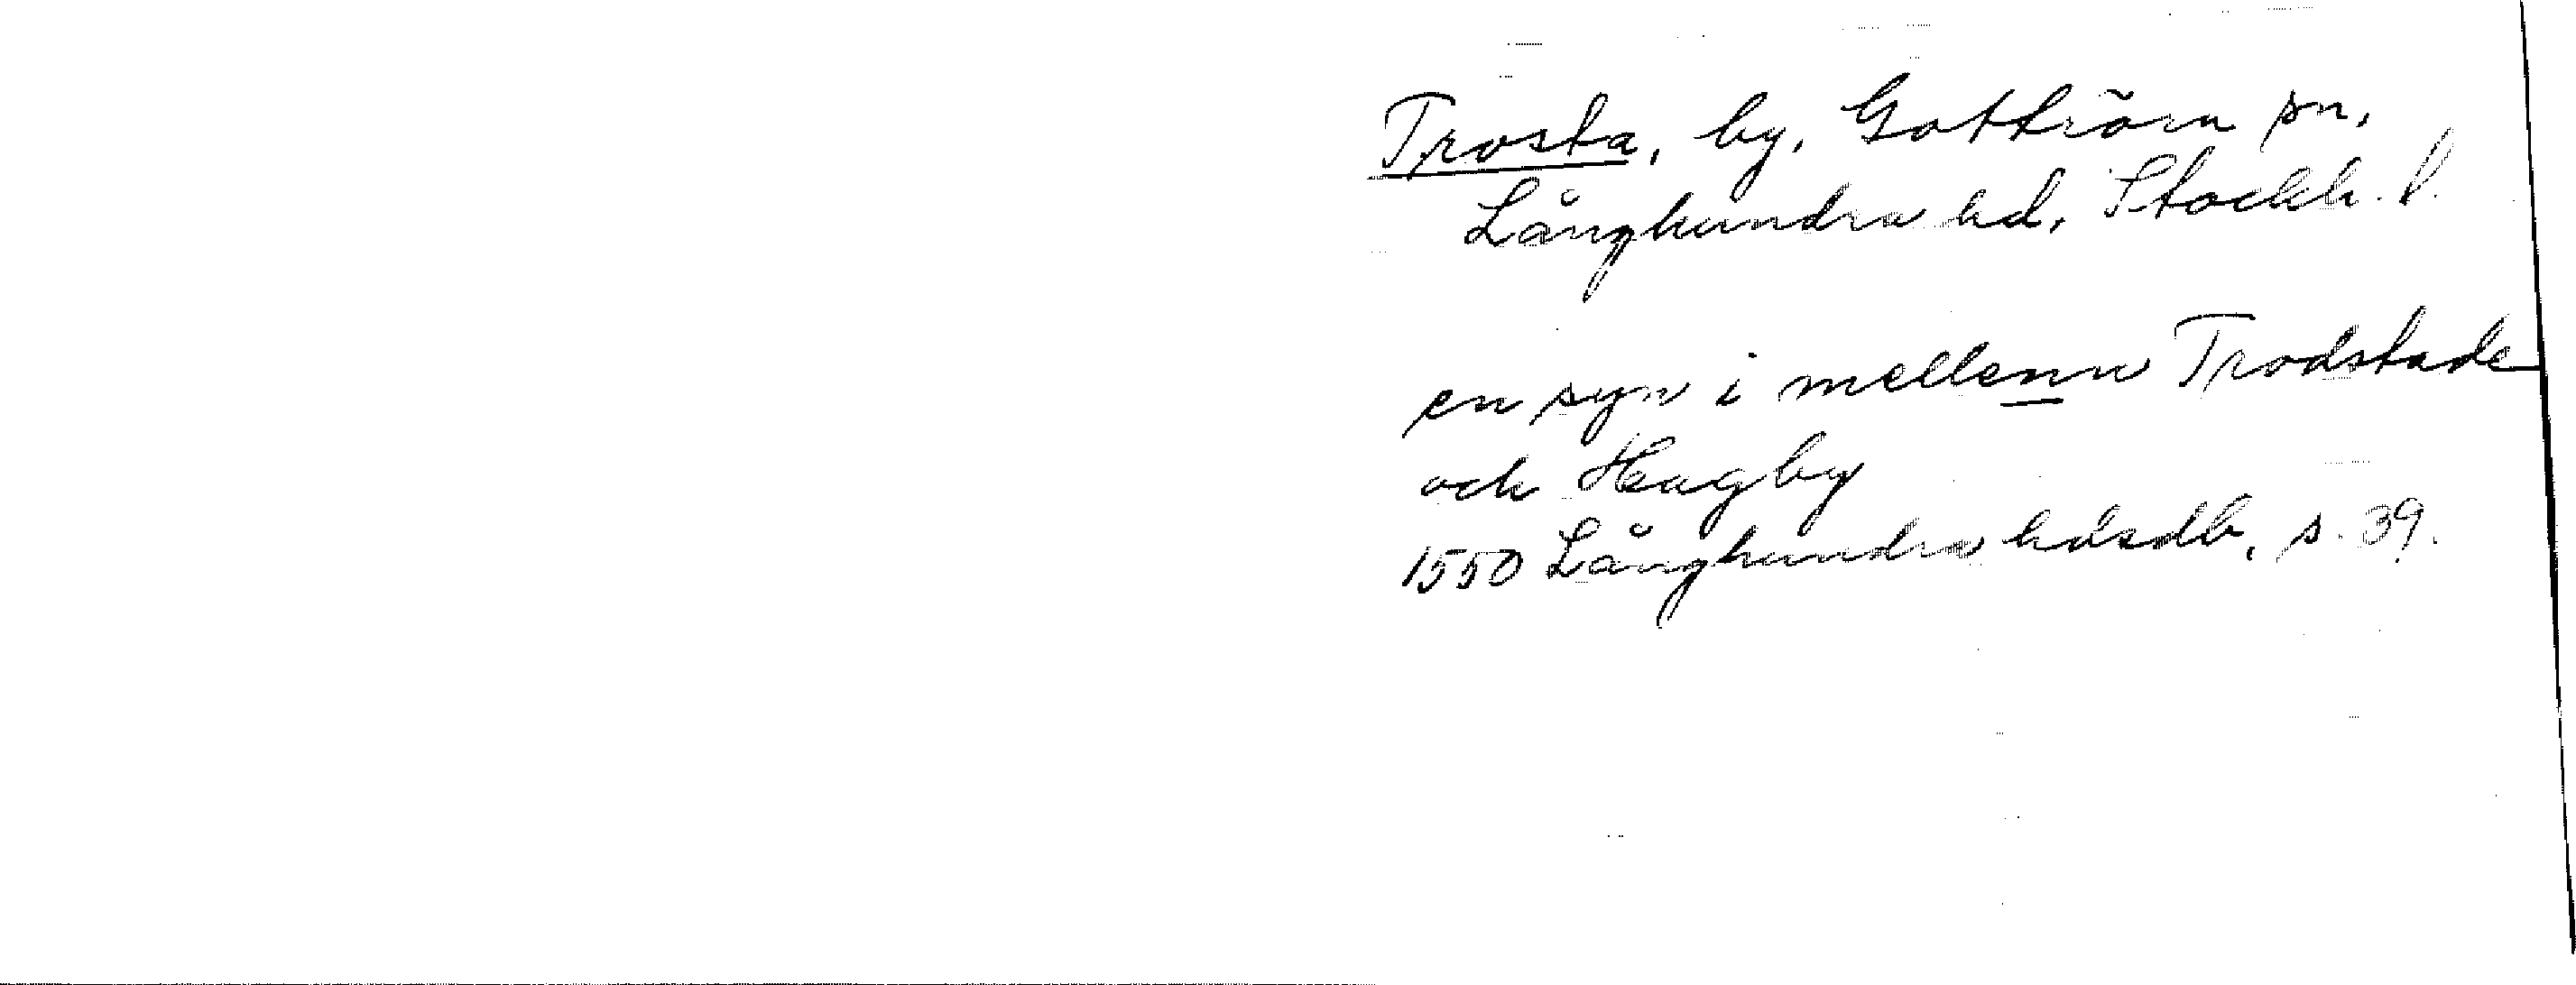 Trosta, by, Gottröra sn,
Långhundra hd, Stockh. l.
en syn i mellenn Trodstade
och Hagby
1550 Långhundra hdsdb, s. 39.